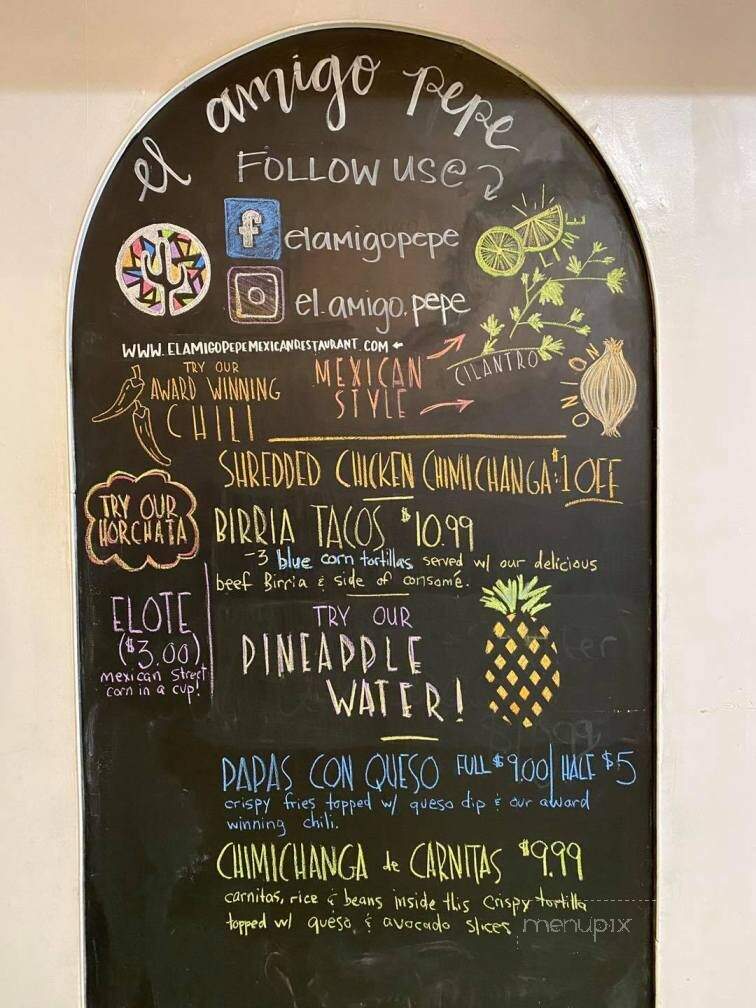 el amigo pepe
FOLLOW US@
f elamigopepe
el.amigo.pepe
LIME
WWW.ELAMIGOPEPEMEXICANRESTAURANT.COM
TRY OUR
AWARD WINNING
CHILI
MEXICAN
STYLE
CILANTRO
ONION
SHREDDED CHICKEN CHIMICHANGA $1 OFF
TRY OUR
HORCHATA
BIRRIA TACOS $10.99
-3 blue corn tortillas served w/ our delicious
beef Birria & side of consomé.
ELOTE
($3.00)
mexican street
corn in a cup!
TRY OUR
PINEAPPLE
WATER!
PAPAS CON QUESO FULL $9.00 | HALF $5
crispy fries topped w/ queso dip & our award
winning chili.
CHIMICHANGA de CARNITAS $9.99
carnitas, rice & beans inside this crispy tortilla
topped w/ queso, & avocado slices
menupix